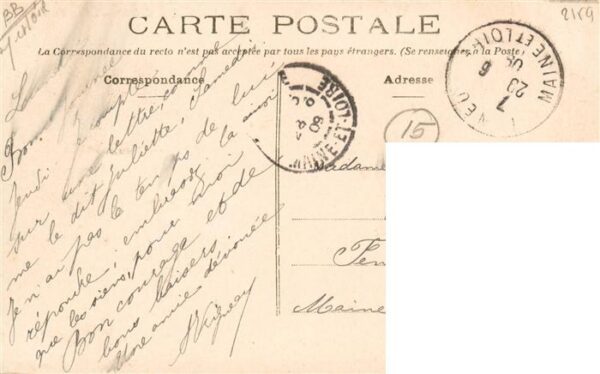 BB
2159
CARTE POSTALE
La Correspondance du recto n'est pas acceptée par tous les pays étrangers. (Se renseigner à la Poste)
Correspondance
Adresse
MAINE ET LOIRE
7
23
6
MAINE-ET-LOIRE
15
Bonne
Jeudi je compte
sur une lettre, comme
me le dit Juliette, Samedi
je n'ai pas le temps de lui
répondre, embrasse la ainsi
que les siens, pour moi
Bon courage et de
bons baisers
Votre amie dévouée
Madame
Maine